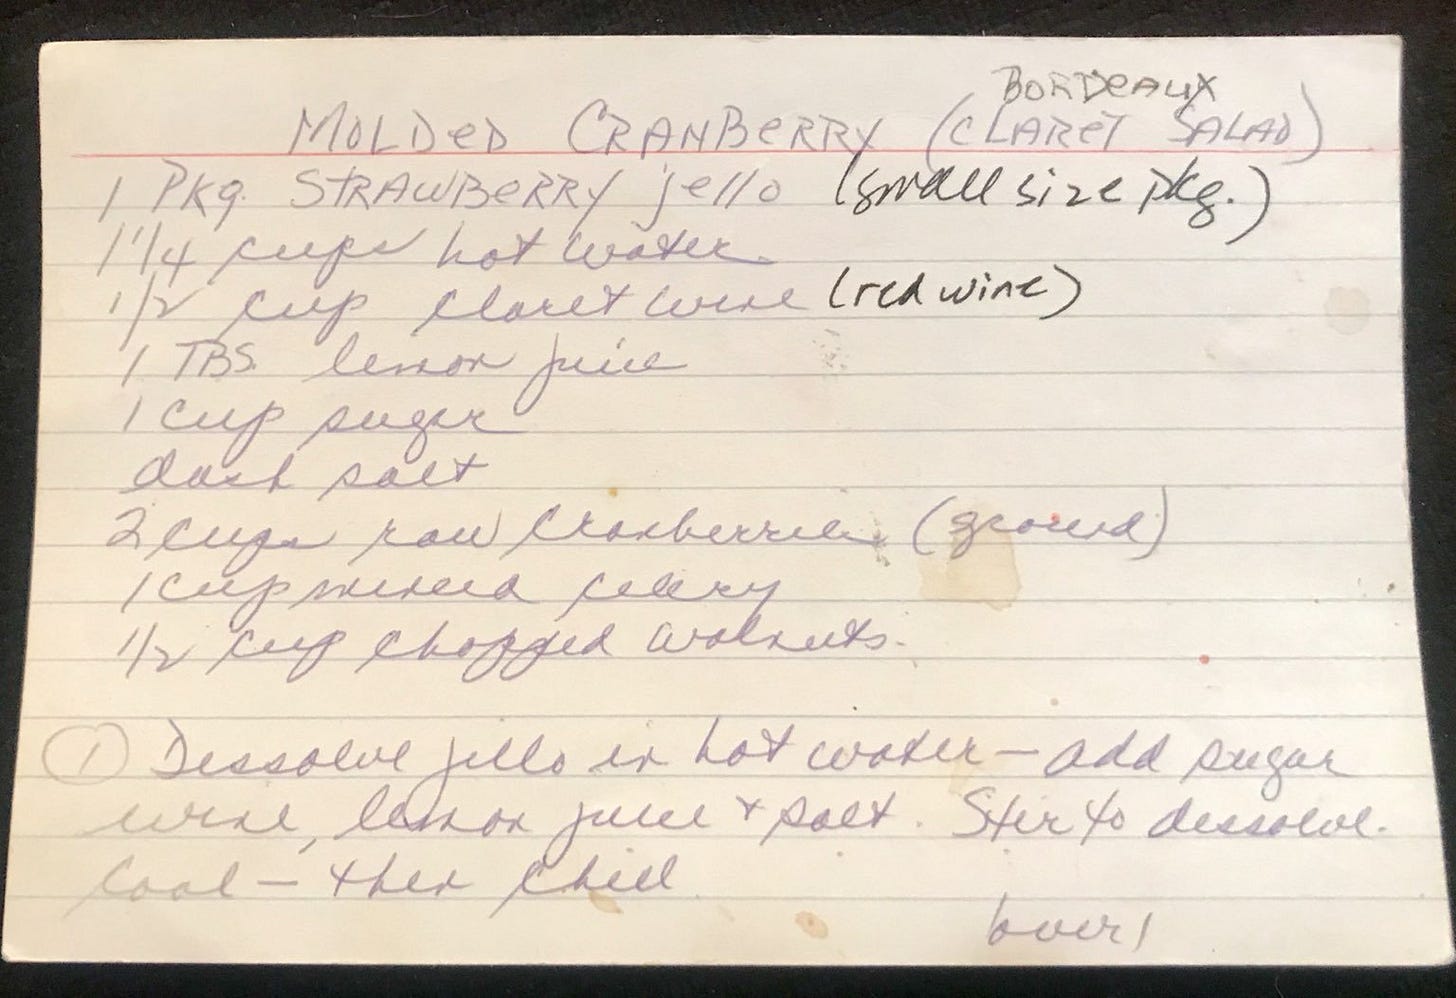 BORDEAUX
MOLDED CRANBERRY (CLARET SALAD)
1 Pkg. STRAWBERRY jello (small size pkg.)
1 1/4 cups hot water
1/2 cup claret wine (red wine)
1 TBS. lemon juice
1 cup sugar
dash salt
2 cups raw cranberries (ground)
1 cup minced celery
1/2 cup chopped walnuts.
① Dissolve jello in hot water — add sugar
wine, lemon juice + salt. Stir to dissolve.
Cool — then chill
(over)